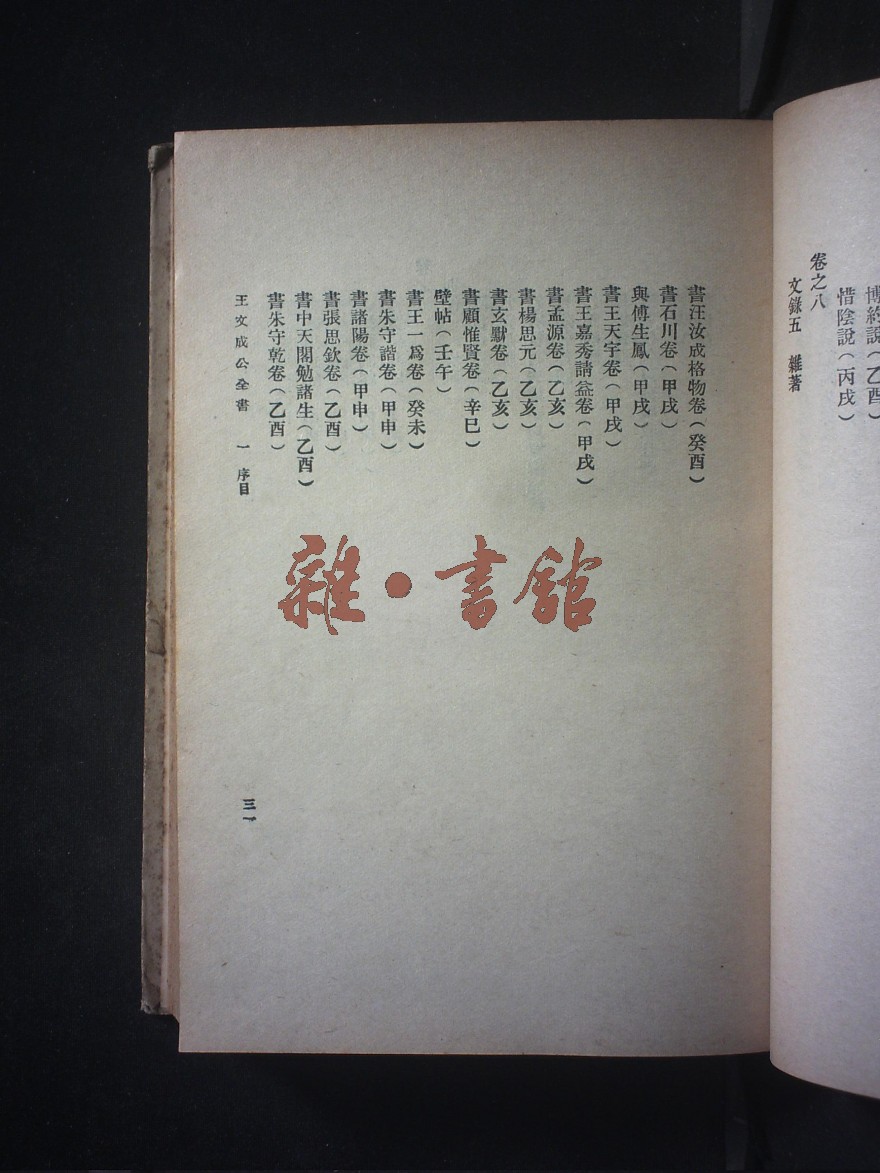 博約說(乙酉)
惜陰說(丙戌)
卷之八
文錄五 雜著
書汪汝成格物卷(癸酉)
書石川卷(甲戌)
與傅生鳳(甲戌)
書王天宇卷(甲戌)
書王嘉秀請益卷(甲戌)
書孟源卷(乙亥)
書楊思元卷(乙亥)
書玄默卷(乙亥)
書顧惟賢卷(辛巳)
壁帖(壬午)
書王一爲卷(癸未)
書朱守諧卷(甲申)
書諸陽卷(甲申)
書張思欽卷(乙酉)
書中天閣勉諸生(乙酉)
書朱守乾卷(乙酉)
王文成公全書 一 序目
三一
雜·書館